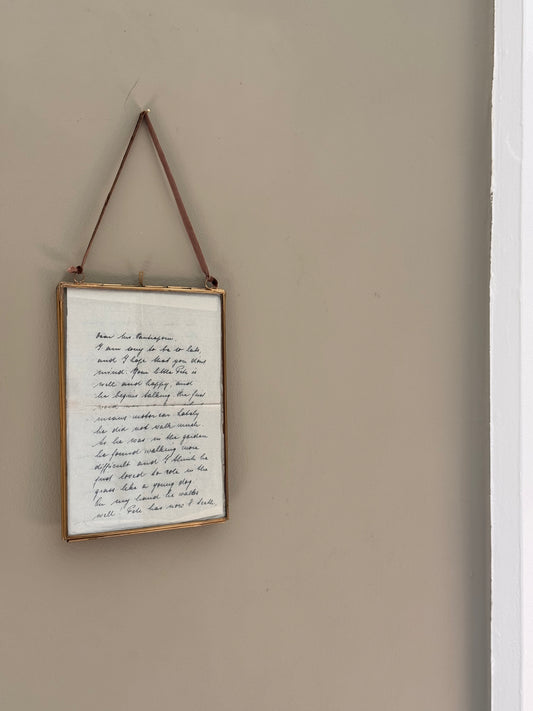 Dear Mrs
I am sorry to be so late
and I hope that you dont
mind. Your little Pete is
well and happy, and
he begins talking. the first
word
means motor car. Lately
he did not walk much
So he was in the garden
he found walking more
difficult and I think he
just loved to role in the
grass like a young dog.
In my hand he walks
well. Pete has now 8 teeth